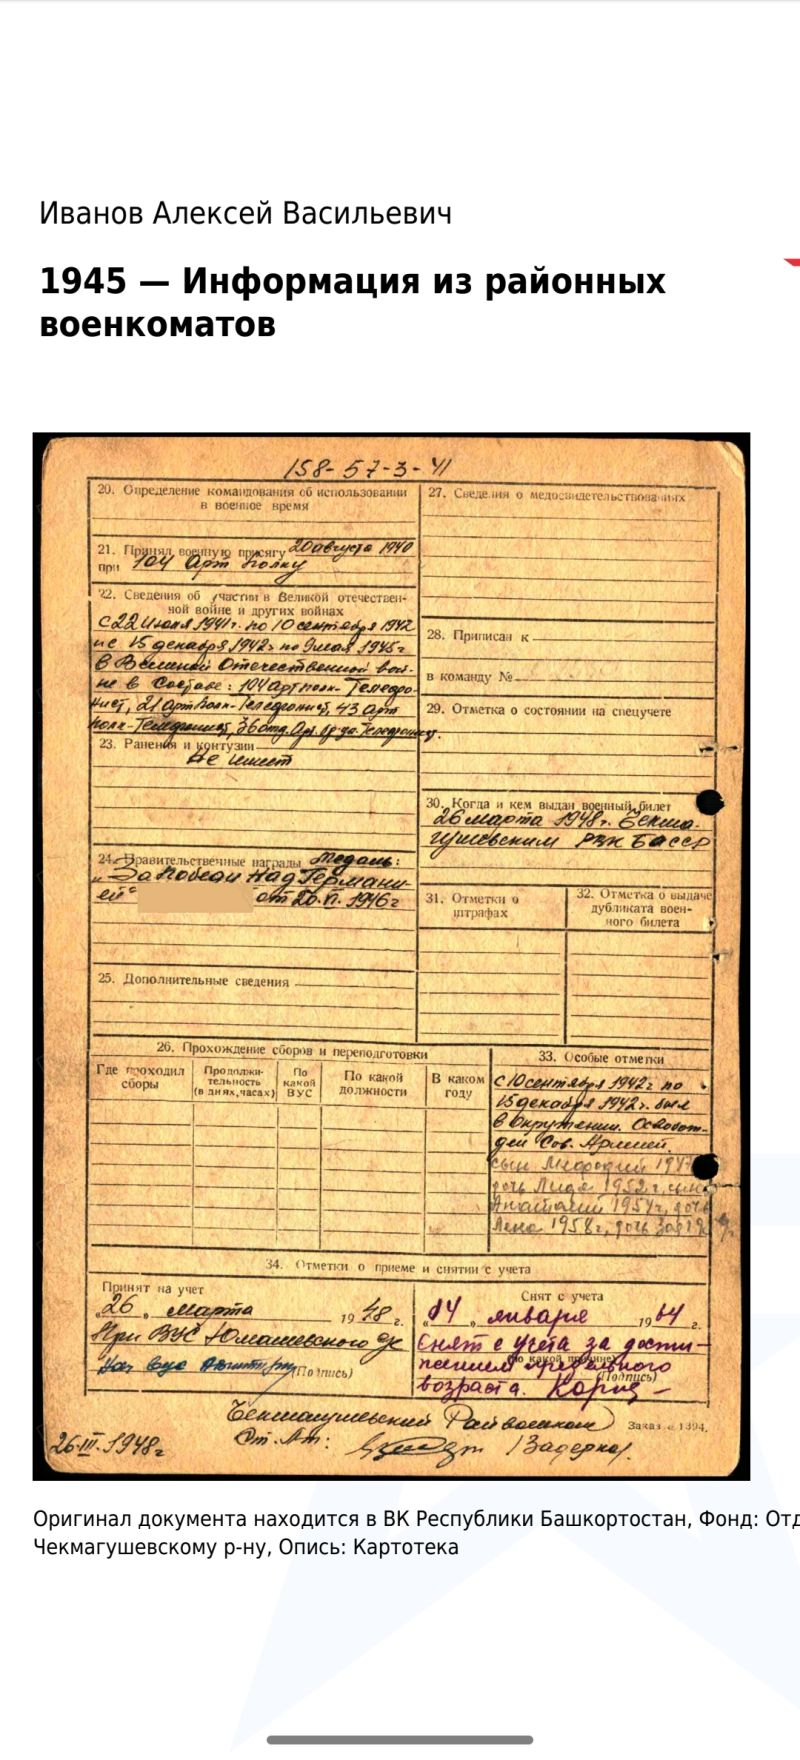 Иванов Алексей Васильевич
1945 — Информация из районных
военкоматов
158-57-3-41
20. Определение командования об использовании
в военное время
21. Принял военную присягу 20 августа 1940
при 104 Арт полку
22. Сведения об участии в Великой отечествен-
ной войне и других войнах
с 22 июля 1941г. по 10 сентября 1942
и с 15 декабря 1942г по 9 мая 1945г
в Великой Отечественной вой-
не в составе: 104 арт полк- Телефо-
нист, 21 арт полк- Телефонист, 43 арт
полк- Телефонист, 36 отд. Телефонист.
23. Ранения и контузии
не имеет
24. Правительственные награды медаль:
„За победу над Германи-
ей" от 20.VI.1946г
25. Дополнительные сведения
26. Прохождение сборов и переподготовки
Где проходил сборы
Продолжи-тельность (в днях, часах)
По какой ВУС
По какой должности
В каком году
27. Сведения о медосвидетельствованиях
28. Приписан к
в команду №
29. Отметка о состоянии на спецучете
30. Когда и кем выдан военный билет
26 марта 1948г. Чекма-
гушевским РВК БАССР
31. Отметки о штрафах
32. Отметка о выдаче дубликата воен-ного билета
33. Особые отметки
с 10 сентября 1942г по
15 декабря 1942г. был
в окружении. Освобож-
ден Сов. Армией.
сын 1947
дочь Лида 1952г, сын
Анатолий 1954г, дочь
Лена 1958г, дочь
34. Отметки о приеме и снятии с учета
Принят на учет
„26" марта 1948 г.
При ВУС Юмашевского с/с
(Подпись)
Снят с учета
„14" января 1964 г.
Снят с учета за дости-
(по какой причине)
жением предельного
(Подпись)
возраста.
Чекмагушевский Райвоенком
Заказ 1394.
26.III.1948г
Оригинал документа находится в ВК Республики Башкортостан, Фонд: Отд
Чекмагушевскому р-ну, Опись: Картотека